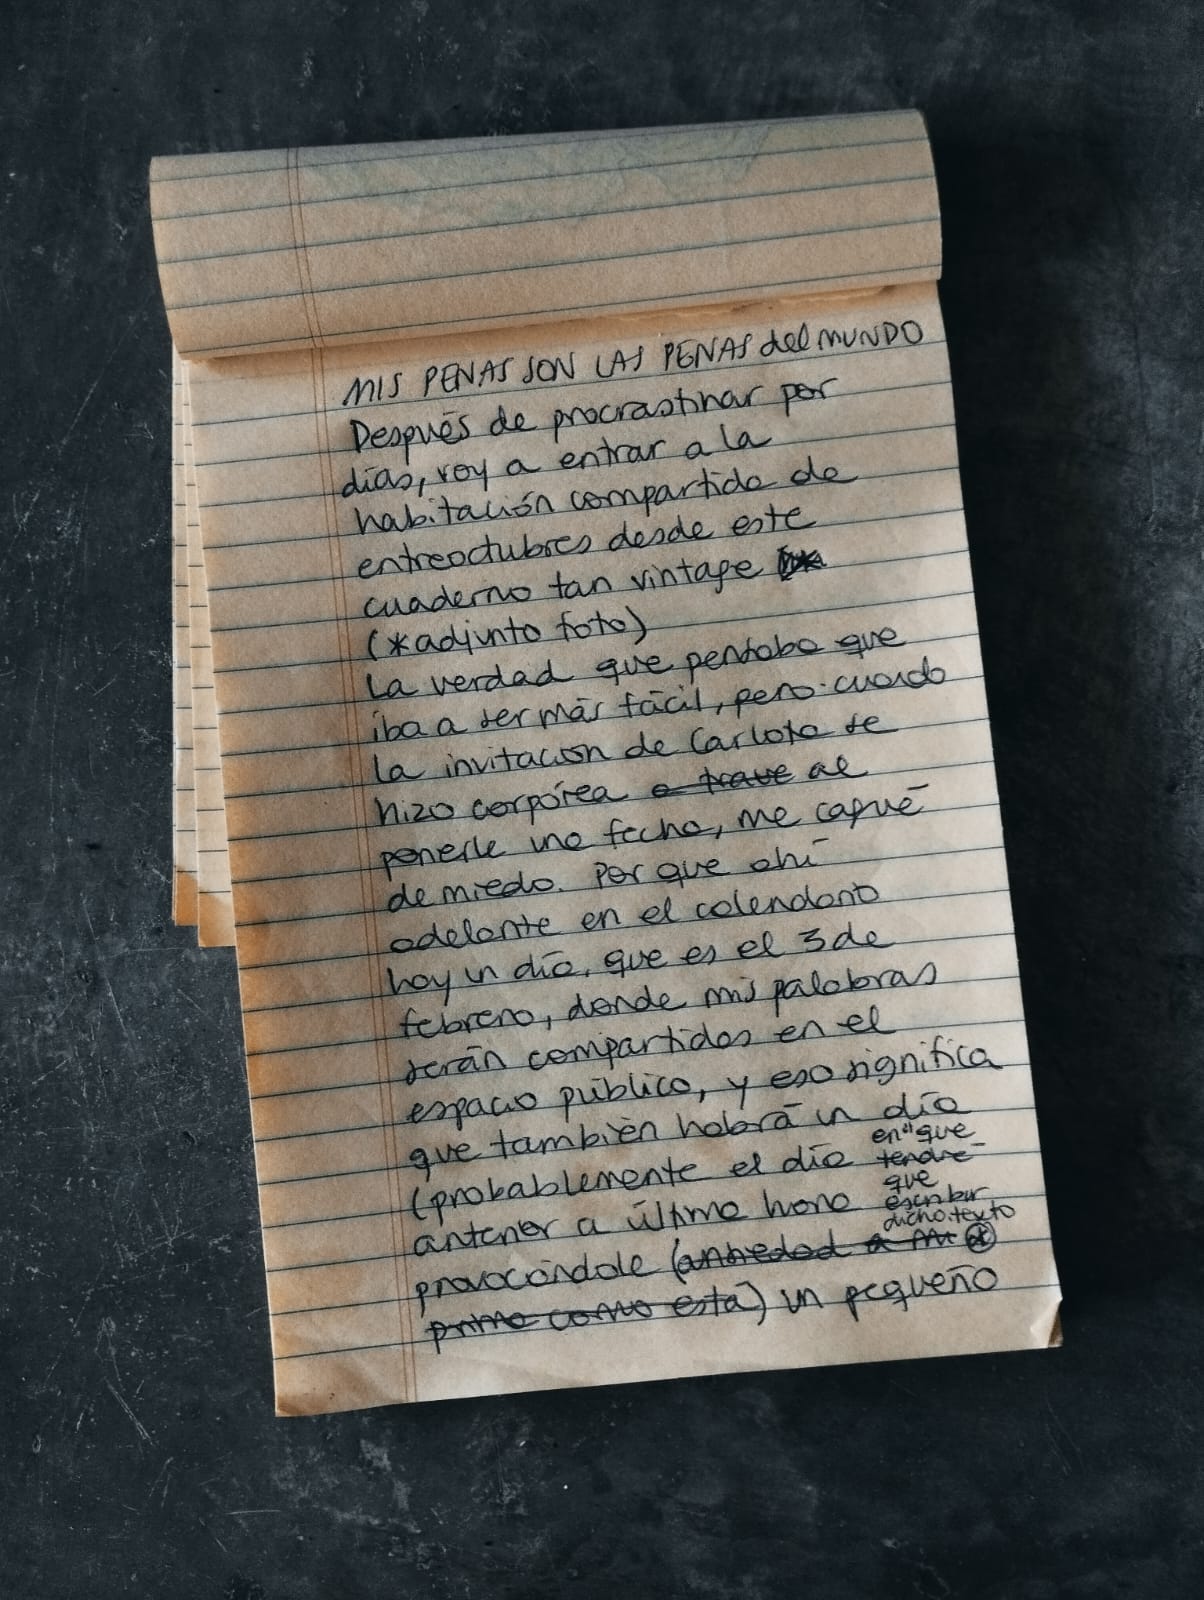 MIS PENAS SON LAS PENAS del MUNDO
Después de procrastinar por
días, voy a entrar a la
habitación compartida de
entreoctubres desde este
cuaderno tan vintage
(*adjunto foto)
La verdad que pensaba que
iba a ser más fácil, pero cuando
la invitación de Carlota se
hizo corpórea a trave al
ponerle una fecha, me cagué
de miedo. Por que ahí
adelante en el calendario
hay un día, que es el 3 de
febrero, donde mis palabras
serán compartidas en el
espacio público, y eso significa
que también habrá un día
(probablemente el día en que
tendré
que
escribir
dicho texto
anterior a última hora
provocándole (ansiedad a mi
primo como esta) un pequeño